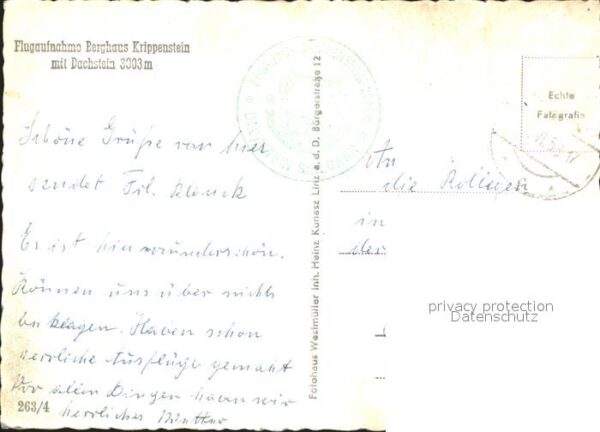 Flugaufnahme Berghaus Krippenstein
mit Dachstein 3003 m
Schöne Grüße von hier
sendet Frl.
Es ist hier wunderschön.
Können uns über nichts
beklagen. Haben schon
herrliche Ausflüge gemacht
Vor allen Dingen haben wir
herrliches
263/4
Fotohaus Westmüller Inh. Heinz Kunesz Linz a. d. D. Bürgerstraße 12
Echte
Fotografie
An
die
in
der
privacy protection
Datenschutz